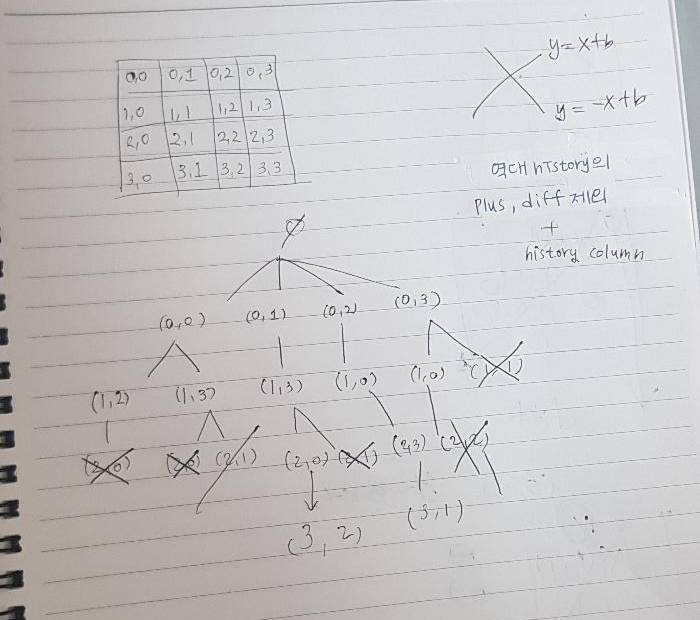 0,0 0,1 0,2 0,3
1,0 1,1 1,2 1,3
2,0 2,1 2,2 2,3
3,0 3,1 3,2 3,3
y=x+b
y=-x+b
역대 history의
plus, diff 제외
+
history column
∅
(0,0) (0,1) (0,2) (0,3)
(1,2) (1,3) (1,3) (1,0) (1,0) (1,1)
(2,0) (2,0) (2,1) (2,0) (2,1) (2,3) (2,2)
(3,2) (3,1)